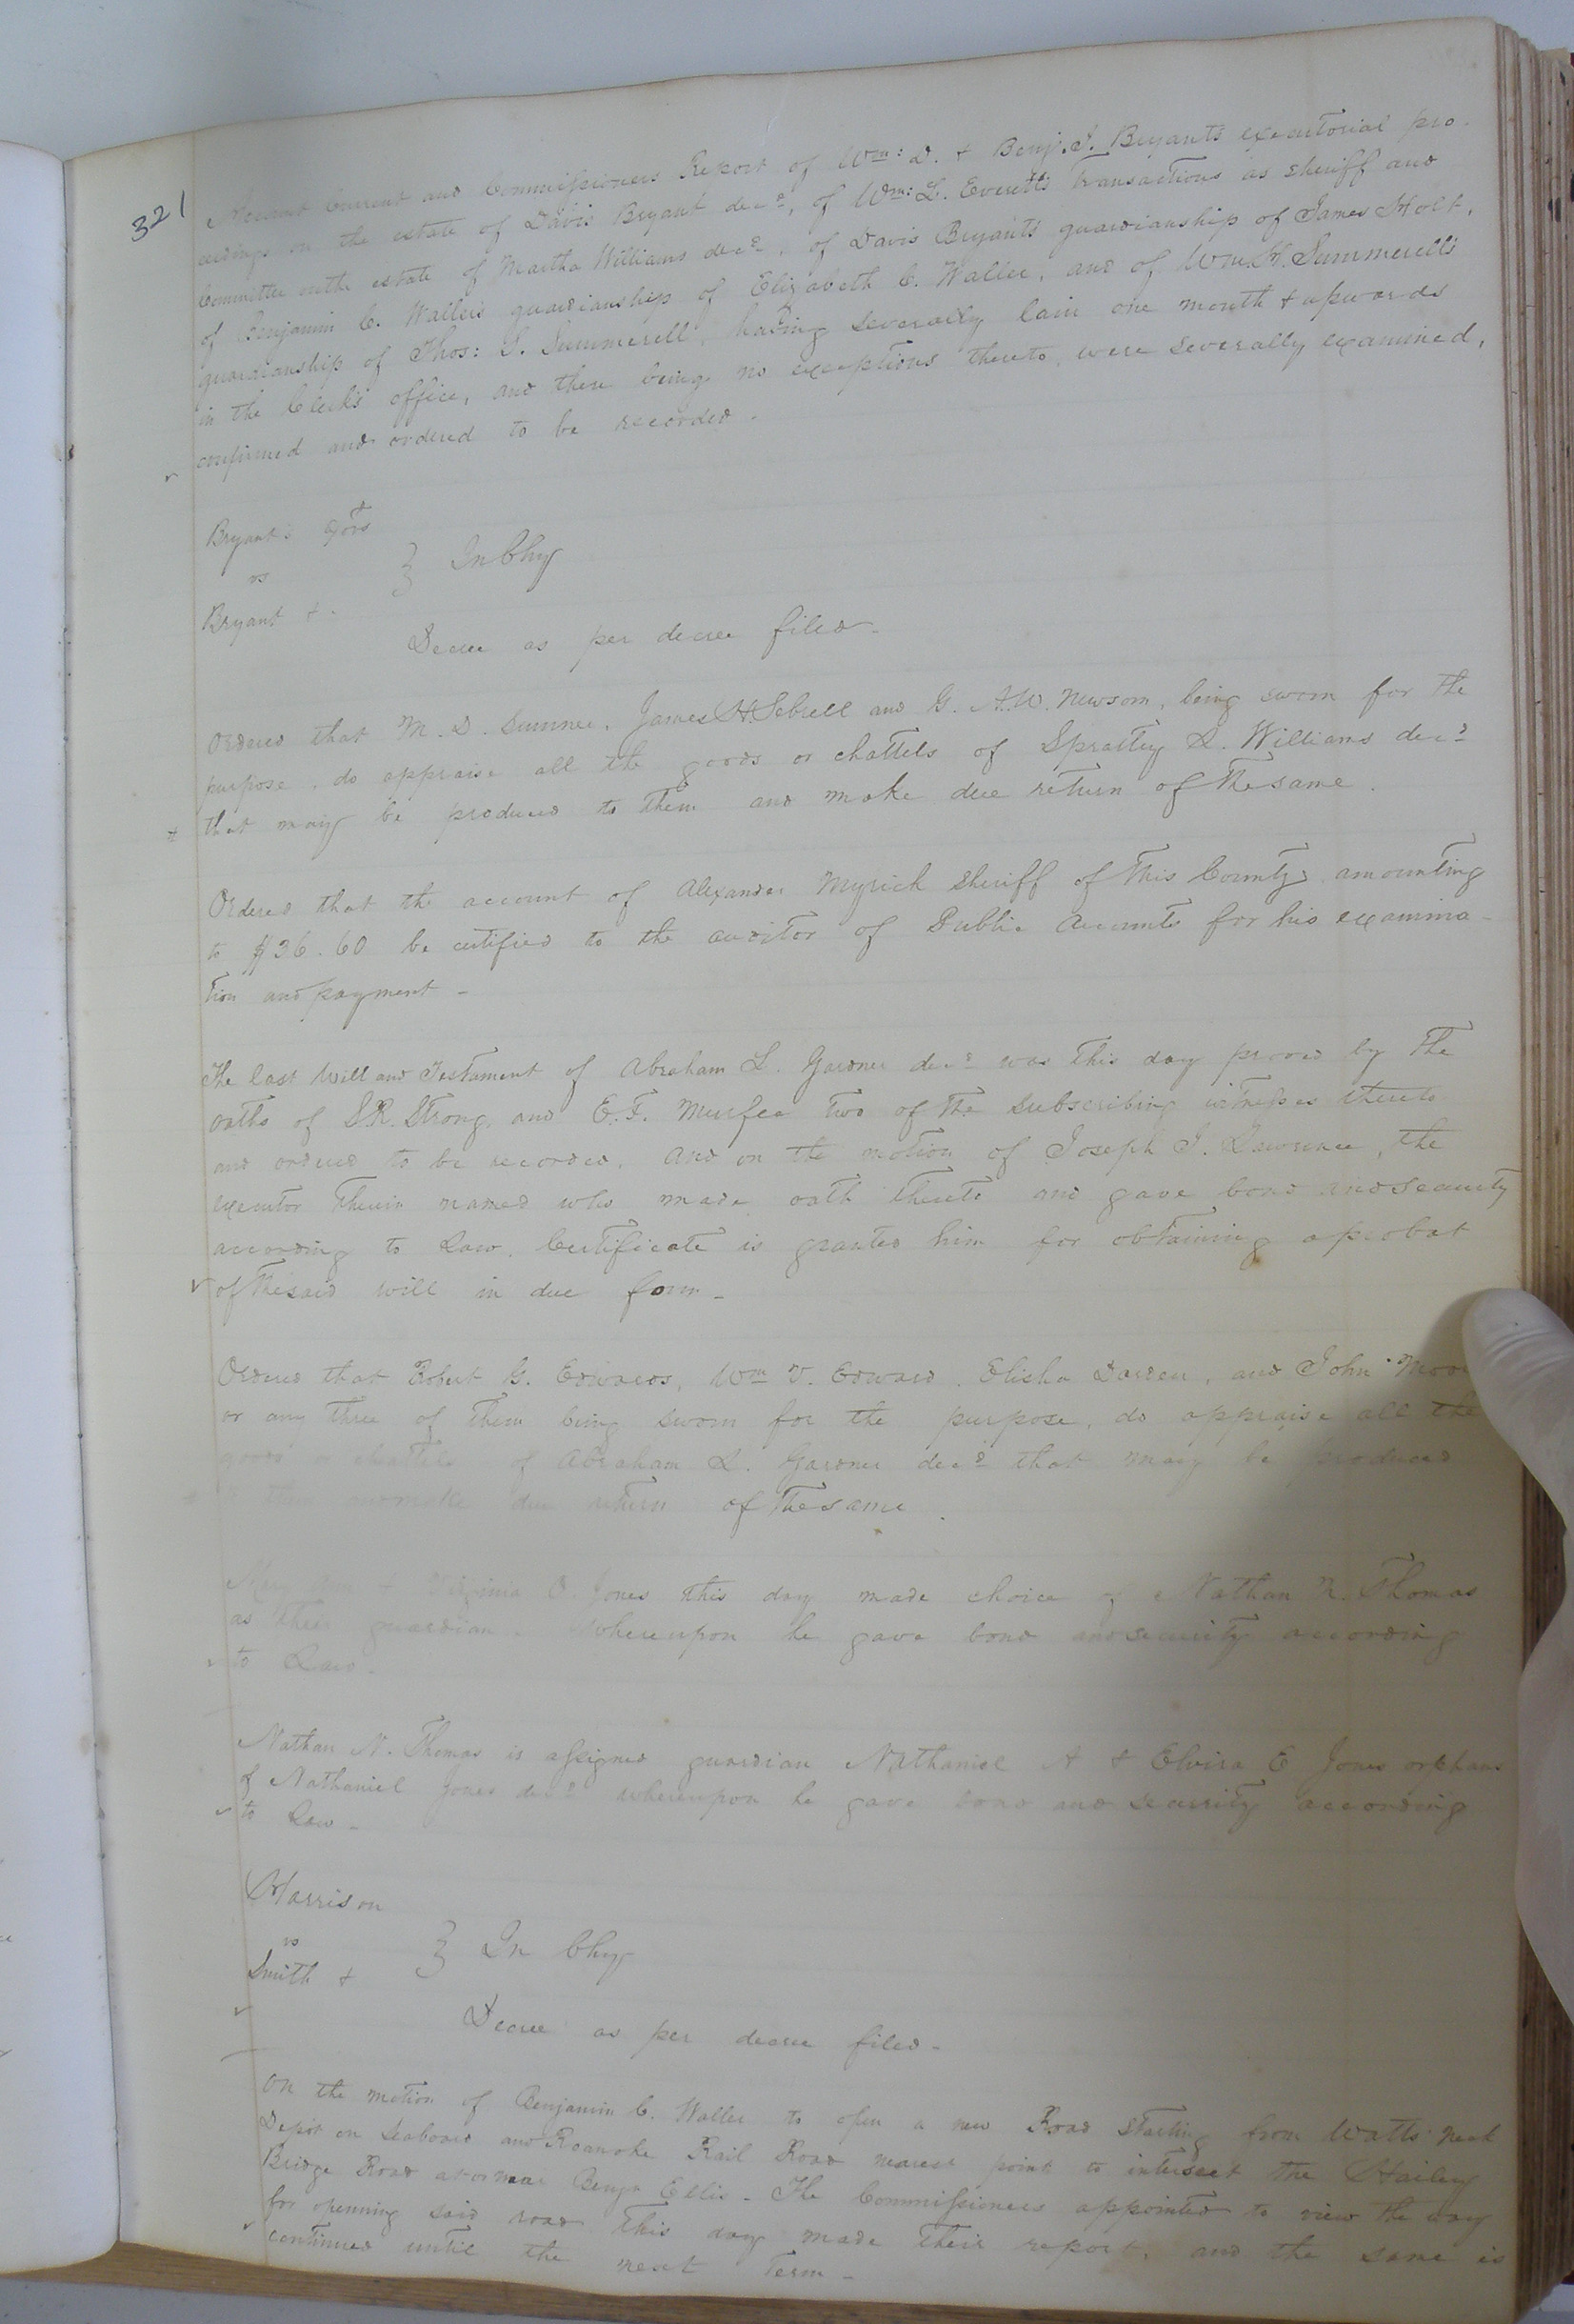 321
Account Current and Commissioners Report of Wm: D. & Benj. J. Bryant's executorial pro-
ceedings on the estate of Davis Bryant decd, of Wm: L. Everett's transactions as sheriff and
Committee on the estate of Martha Williams decd, of Davis Bryant's guardianship of James Holt,
of Benjamin C. Waller's guardianship of Elizabeth C. Waller, and of Wm. H. Summerell's
guardianship of Thos: S. Summerell, having severally lain one month & upwards
in the Clerk's office, and there being no exceptions thereto, were severally examined,
confirmed and ordered to be recorded.
Bryant's Exors
vs
Bryant &.
} In Chy
Decree as per decree filed-
Ordered that M. D. Sumner, James H. Sebrell and G. A. W. Newsom, being sworn for the
purpose, do appraise all the goods or chattels of Spratley L. Williams decd
that may be produced to them and make due return of the same.
Ordered that the account of Alexander Myrick Sheriff of this County amounting
to $36.60 be certified to the auditor of Public Accounts for his examina-
tion and payment -
The last Will and Testament of Abraham L. Gardner decd was this day proved by the
oaths of S. R. Strong, and E. F. Murfee two of the subscribing witnesses thereto
and ordered to be recorded. And on the motion of Joseph J. Lawrence, the
executor therein named who made oath thereto and gave bond and security
according to Law. Certificate is granted him for obtaining a probat
of the said will in due form -
Ordered that Robert G. Edwards, Wm V. Edward, Elisha Darden, and John
or any three of them being sworn for the purpose, do appraise all the
goods or chattels of Abraham L. Gardner decd that may be produced
to them and make due return of the same.
& Virginia O. Jones this day made choice of Nathan N. Thomas
as their guardian. Whereupon he gave bond and security according
to Law -
Nathan N. Thomas is assigned guardian Nathaniel A & Elvira E Jones orphans
of Nathaniel Jones decd whereupon he gave bond and security according
to Law -
Harrison
vs
Smith &
} In Chy
Decree as per decree filed -
On the motion of Benjamin C. Waller to open a new Road starting from Watts' neat
Depot on Seaboard and Roanoke Rail Road nearest point to intersect the Hailey
Bridge Road at or near Benja Ellis - The Commissioners appointed to view the way
for openning said road this day made their report, and the same is
continued until the next Term -